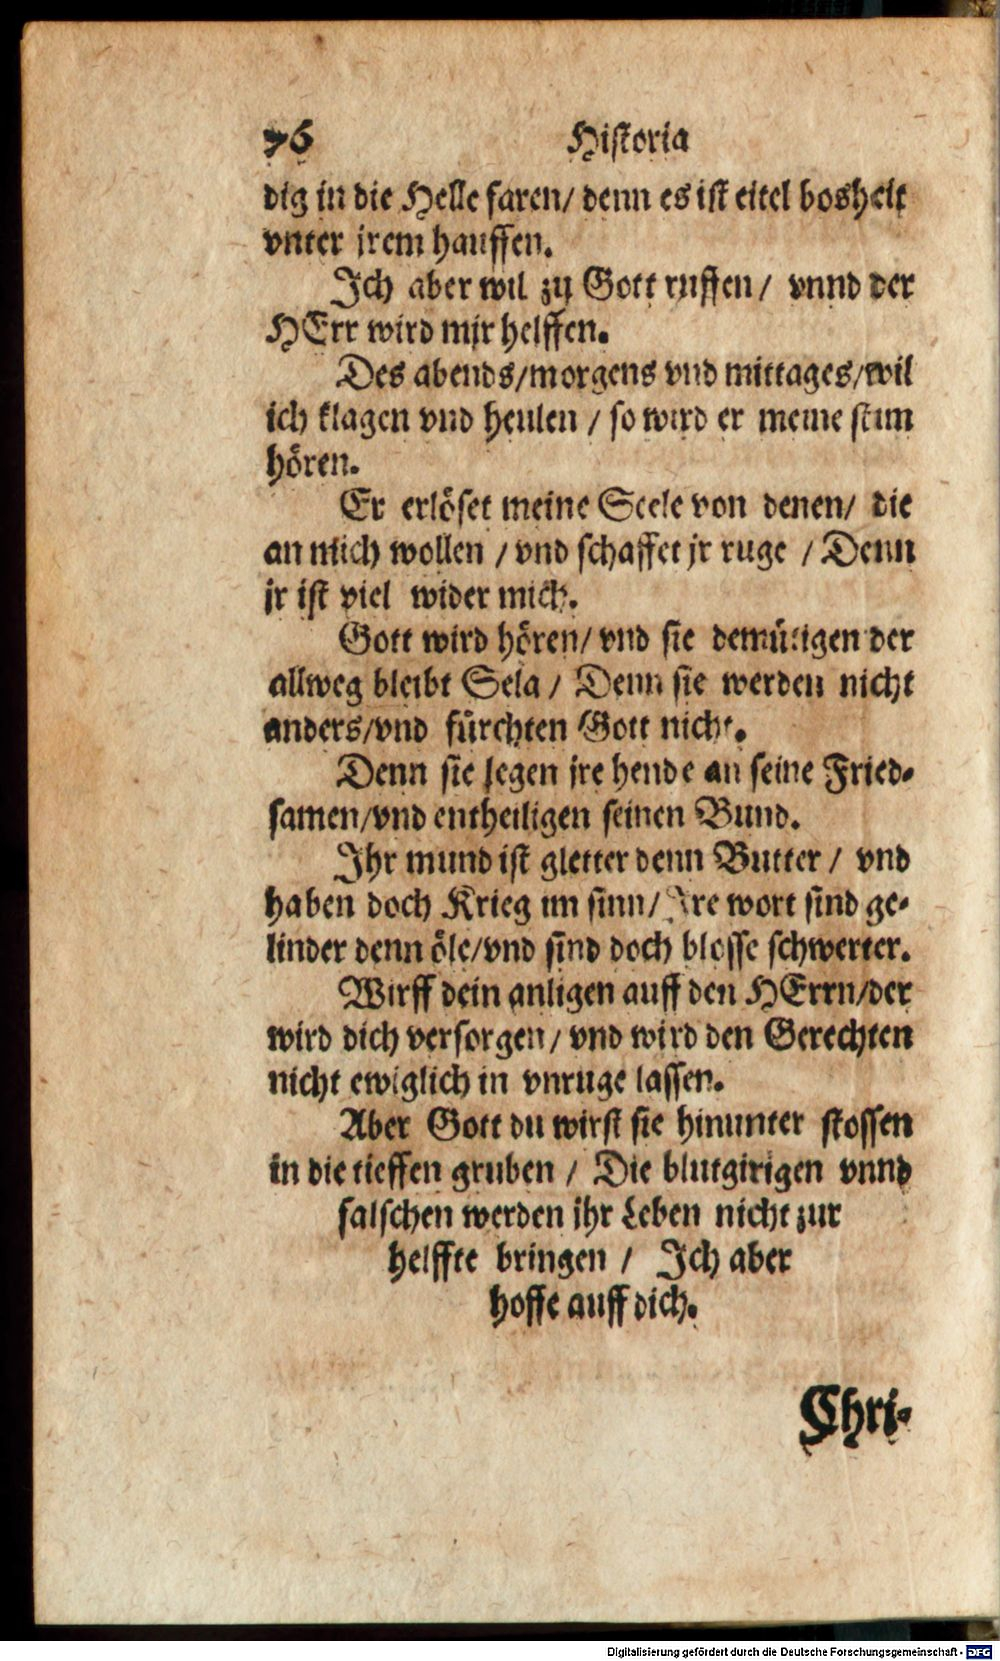 76 Historia
dig in die Helle faren/ denn es ist eitel bosheit
vnter jrem hauffen.
Ich aber wil zu Gott ruffen/ vnnd der
HErr wird mir helffen.
Des abends/morgens vnd mittages/wil
ich klagen vnd heulen / so wird er meine stim
hören.
Er erlöset meine Seele von denen/ die
an mich wollen / vnd schaffet jr ruge / Denn
jr ist viel wider mich.
Gott wird hören/ vnd sie demütigen der
allweg bleibt Sela / Denn sie werden nicht
anders/vnd fürchten Gott nicht.
Denn sie legen jre hende an seine Fried-
samen/vnd entheiligen seinen Bund.
Ihr mund ist gletter denn Butter / vnd
haben doch Krieg im sinn/ Ire wort sind ge-
linder denn öle/vnd sind doch blosse schwerter.
Wirff dein anligen auff den HErrn/der
wird dich versorgen / vnd wird den Gerechten
nicht ewiglich in vnruge lassen.
Aber Gott du wirst sie hinunter stossen
in die tieffen gruben / Die blutgirigen vnnd
falschen werden ihr Leben nicht zur
helffte bringen / Ich aber
hoffe auff dich.
Chri-
Digitalisierung gefördert durch die Deutsche Forschungsgemeinschaft - DFG